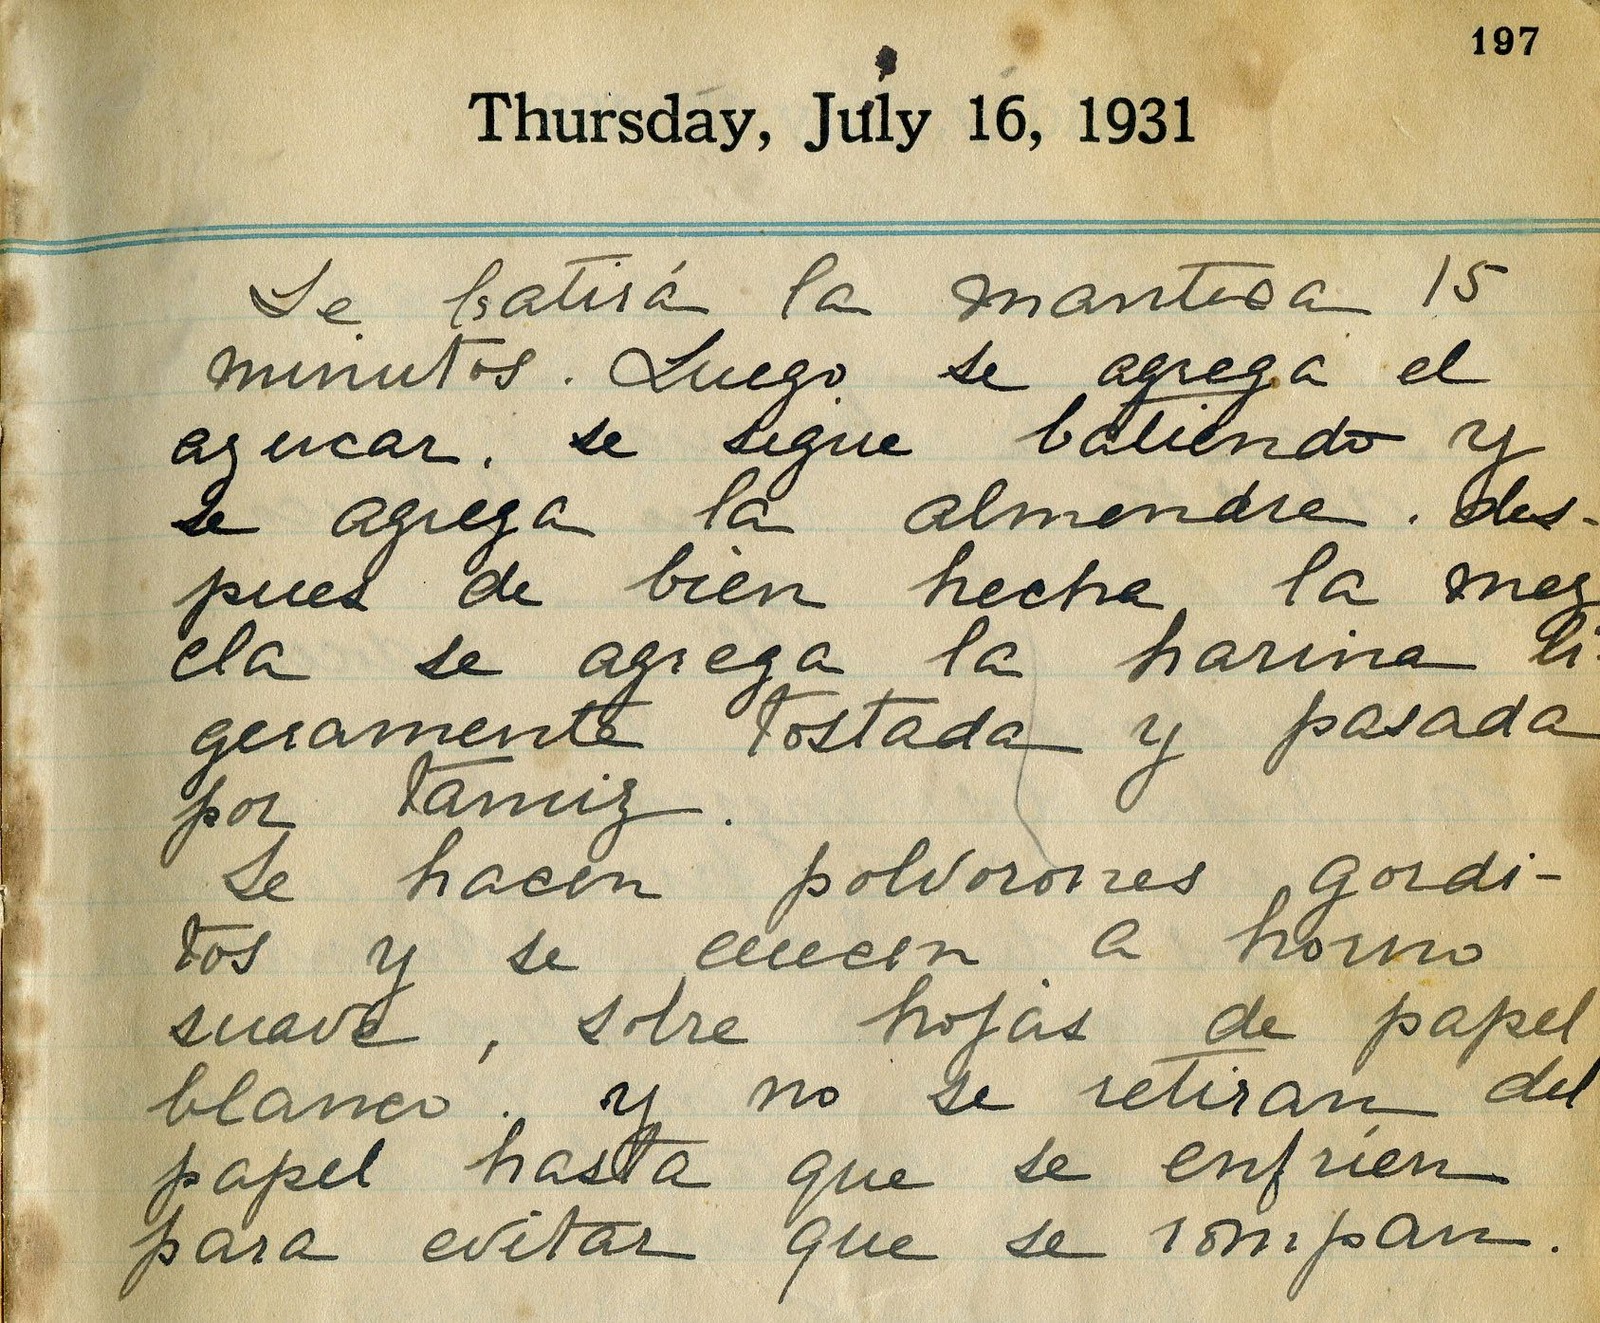 197
Thursday, July 16, 1931
Se batirá la manteca 15
minutos. Luego se agrega el
azucar. se sigue batiendo y
se agrega la almendra. des-
pues de bien hecha la mez
cla se agrega la harina li-
geramente tostada y pasada
por tamiz.
Se hacen polvorones gordi-
tos y se cuecen a horno
suave, sobre hojas de papel
blanco. y no se retiran del
papel hasta que se enfrien
para evitar que se rompan.